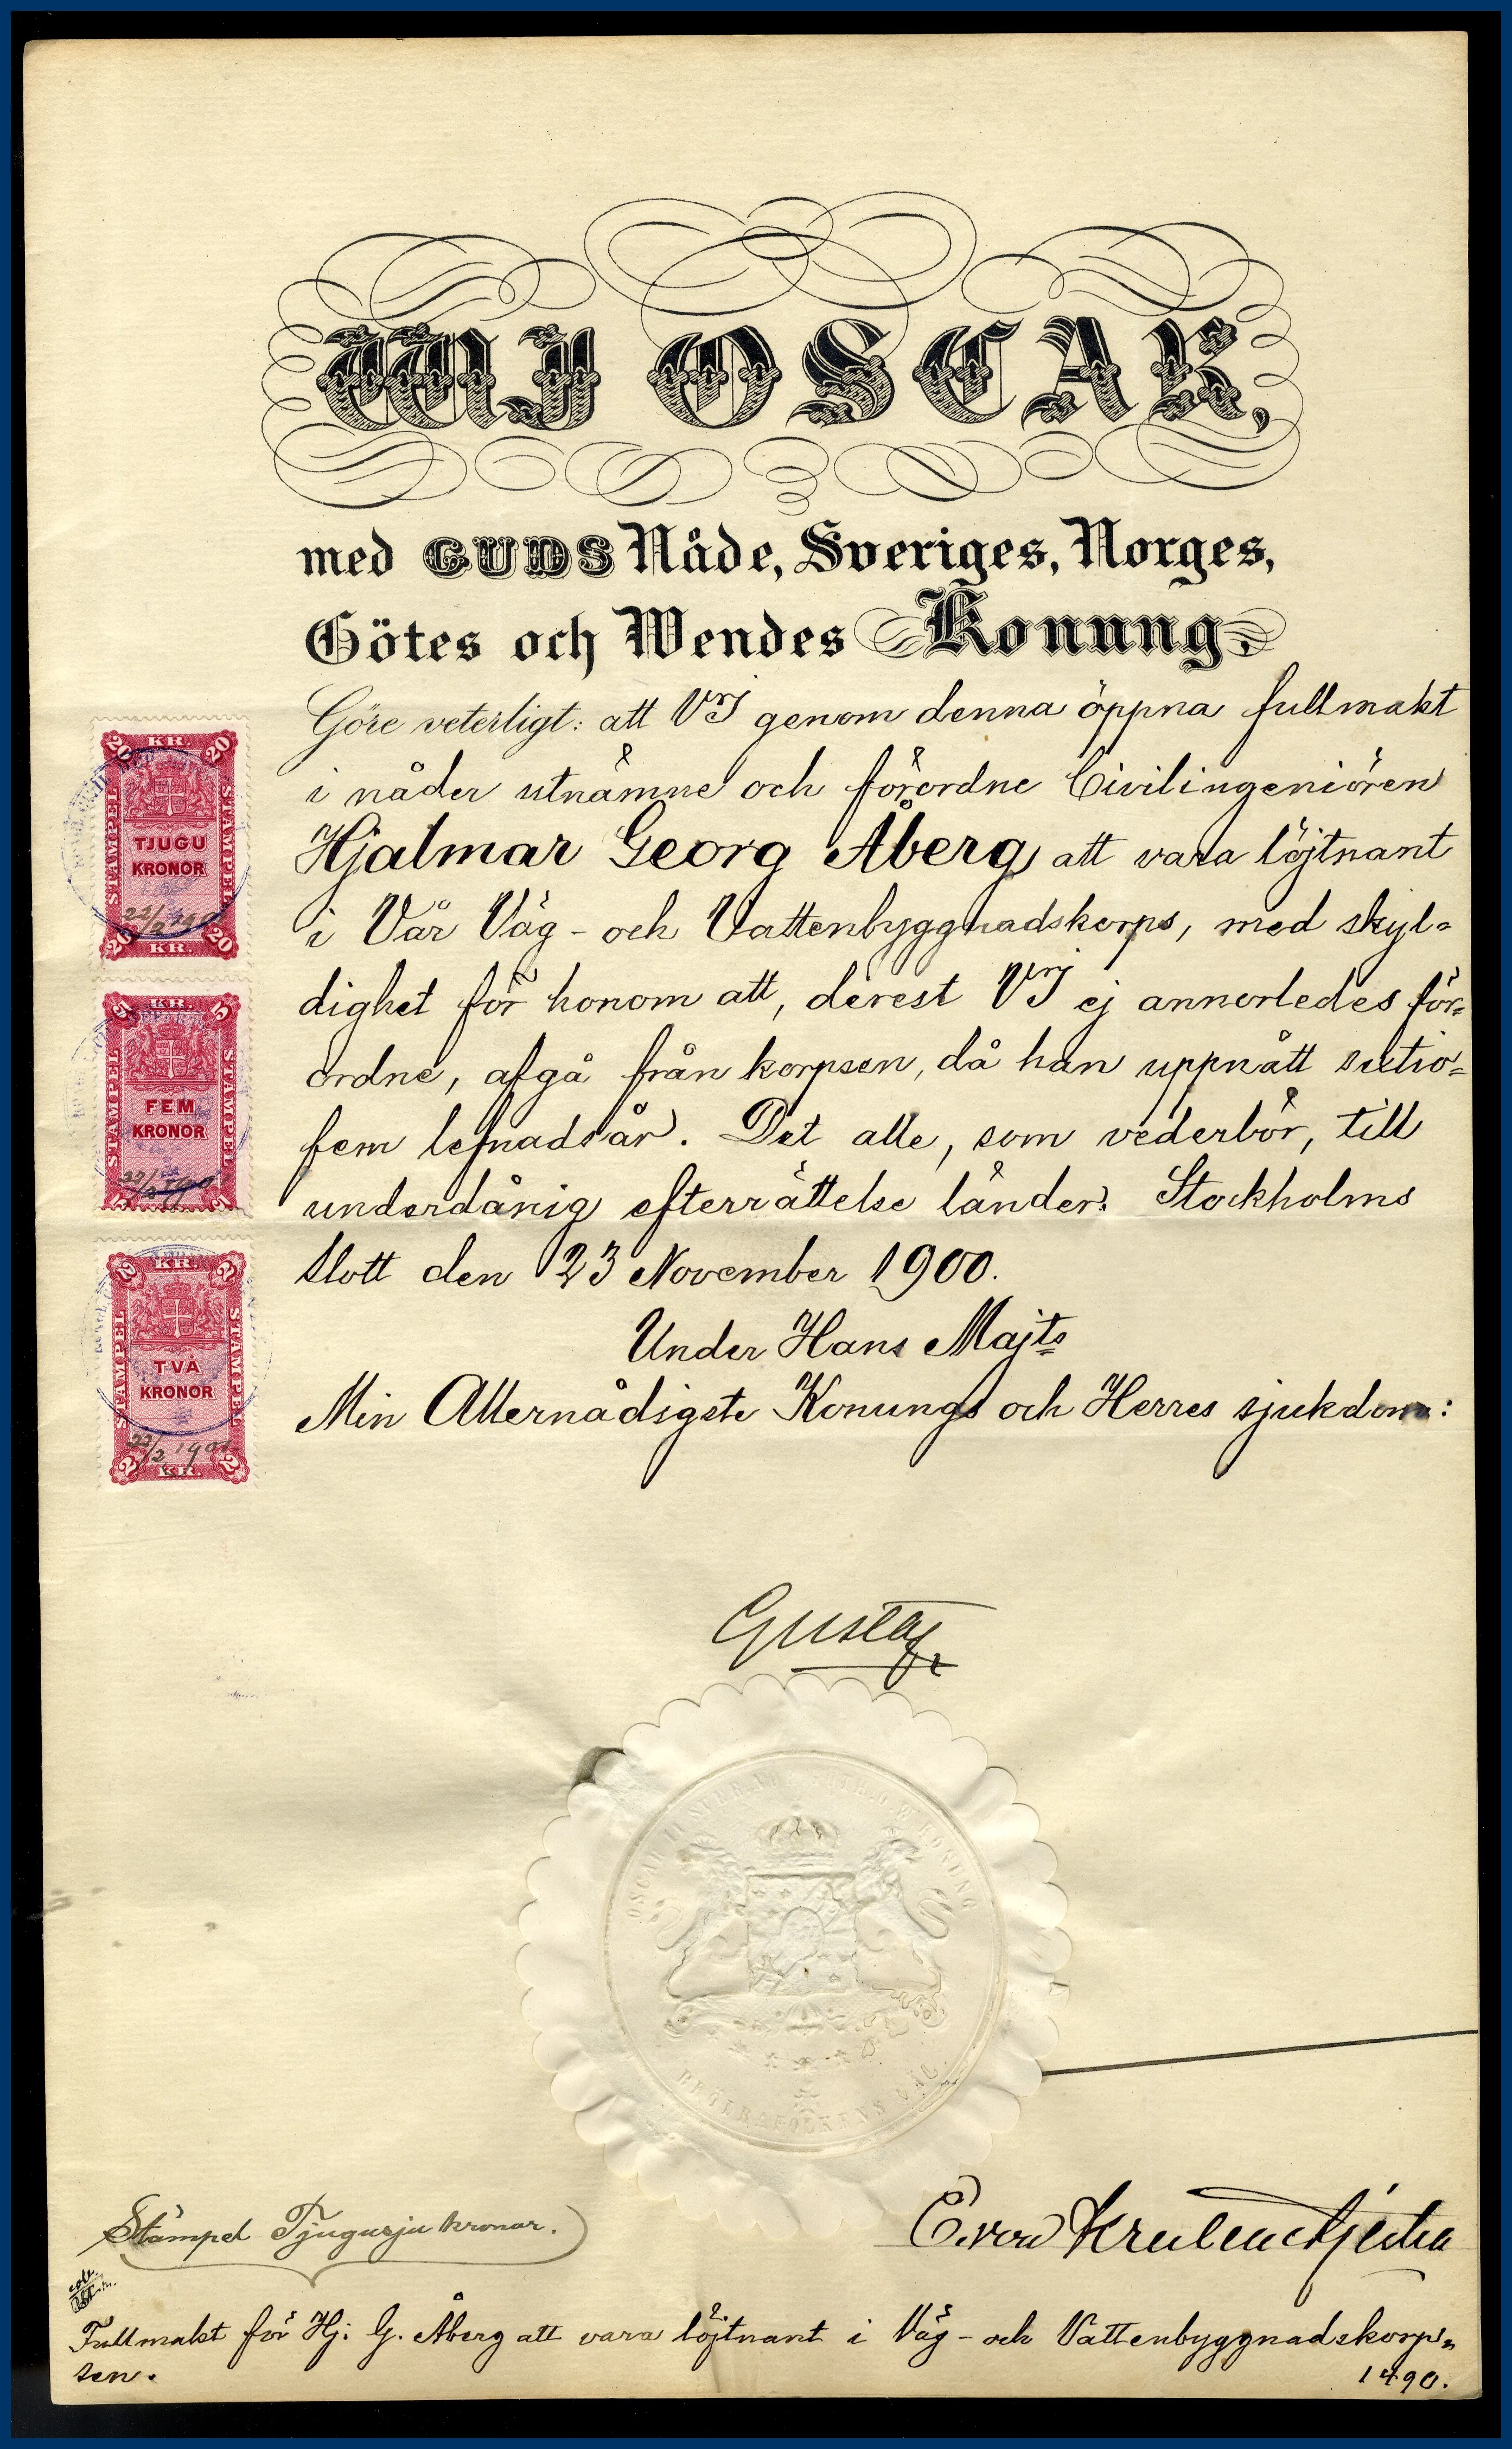 WJ OSCAR,
med GUDS Nåde, Sveriges, Norges,
Götes och Wendes Konung,
Göre veterligt: att VJ genom denna öppna fullmakt
i nåder utnämne och förordne Civilingeniören
Hjalmar Georg Åberg att vara löjtnant
i Vår Väg- och Vattenbyggnadskorps, med skyl-
dighet för honom att, derest VJ ej annorledes för-
ordne, afgå från korpsen, då han uppnått sextio-
fem lefnadsår. Det alle, som vederbör, till
underdånig efterrättelse länder. Stockholms
slott den 23 November 1900.
Under Hans Majts
Min Allernådigste Konungs och Herres sjukdom:
20 KR. 20
STÄMPEL
TJUGU
KRONOR
STÄMPEL
20 KR. 20
5 KR. 5
STÄMPEL
FEM
KRONOR
STÄMPEL
5 5
2 KR. 2
STÄMPEL
TVÅ
KRONOR
STÄMPEL
22/2 1901
2 KR. 2
Gustaf
KONUNG
BRÖDRAFOLKENS VÄL.
Stämpel Tjugusju kronor.
Fullmakt för Hj. G. Åberg att vara löjtnant i Väg- och Vattenbyggnadskorp-
sen.
1490.